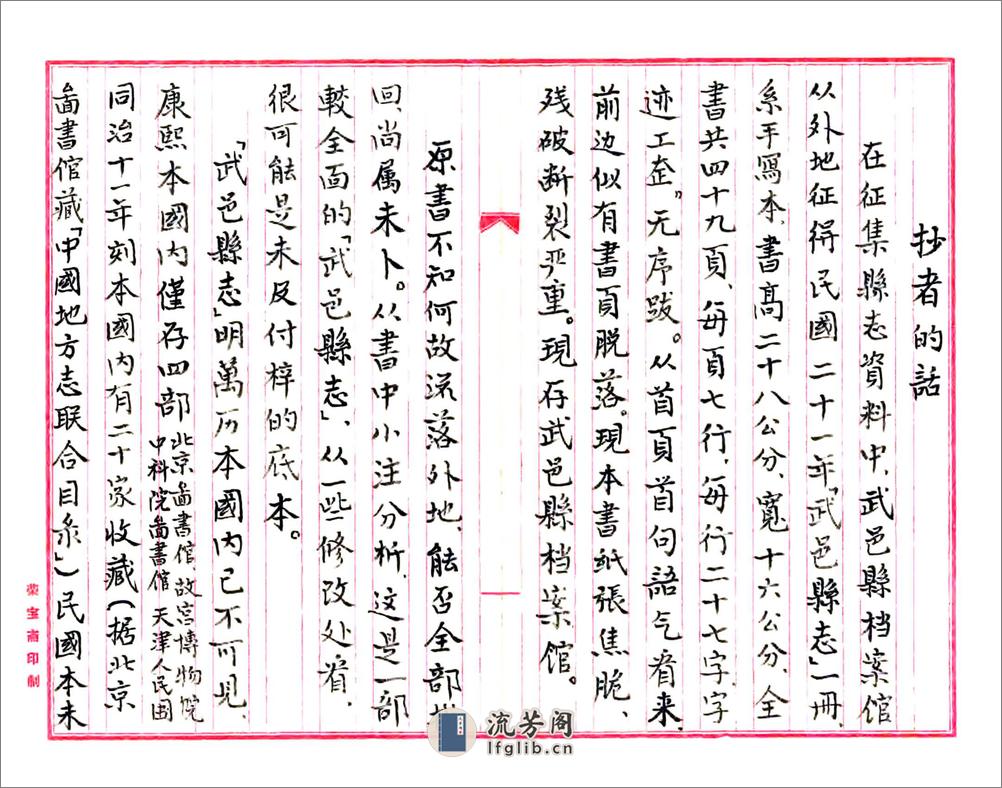 抄者的話
在征集縣志資料中，武邑縣档案馆
从外地征得民國二十一年「武邑縣志」一冊，
系手寫本，書高二十八公分、寬十六公分，全
書共四十九頁，每頁七行，每行二十七字，字
迹工整，无序跋。从首頁首句語气看来，
前边似有書頁脱落。現本書纸張焦脆、
残破断裂严重。現存武邑縣档案馆。
原書不知何故流落外地，能否全部
回，尚属未卜。从書中小注分析，这是一部
較全面的「武邑縣志」，从一些修改处看，
很可能是未及付梓的底本。
「武邑縣志」明萬历本國内已不可見，
康熙本國内僅存四部 北京啚書馆、故宫博物院
中科院啚書馆 天津人民圖
同治十一年刻本國内有二十家收藏（据北京
啚書馆藏「中國地方志联合目录」）民國本未
荣宝斋印制
流芳阁
lfglib.cn